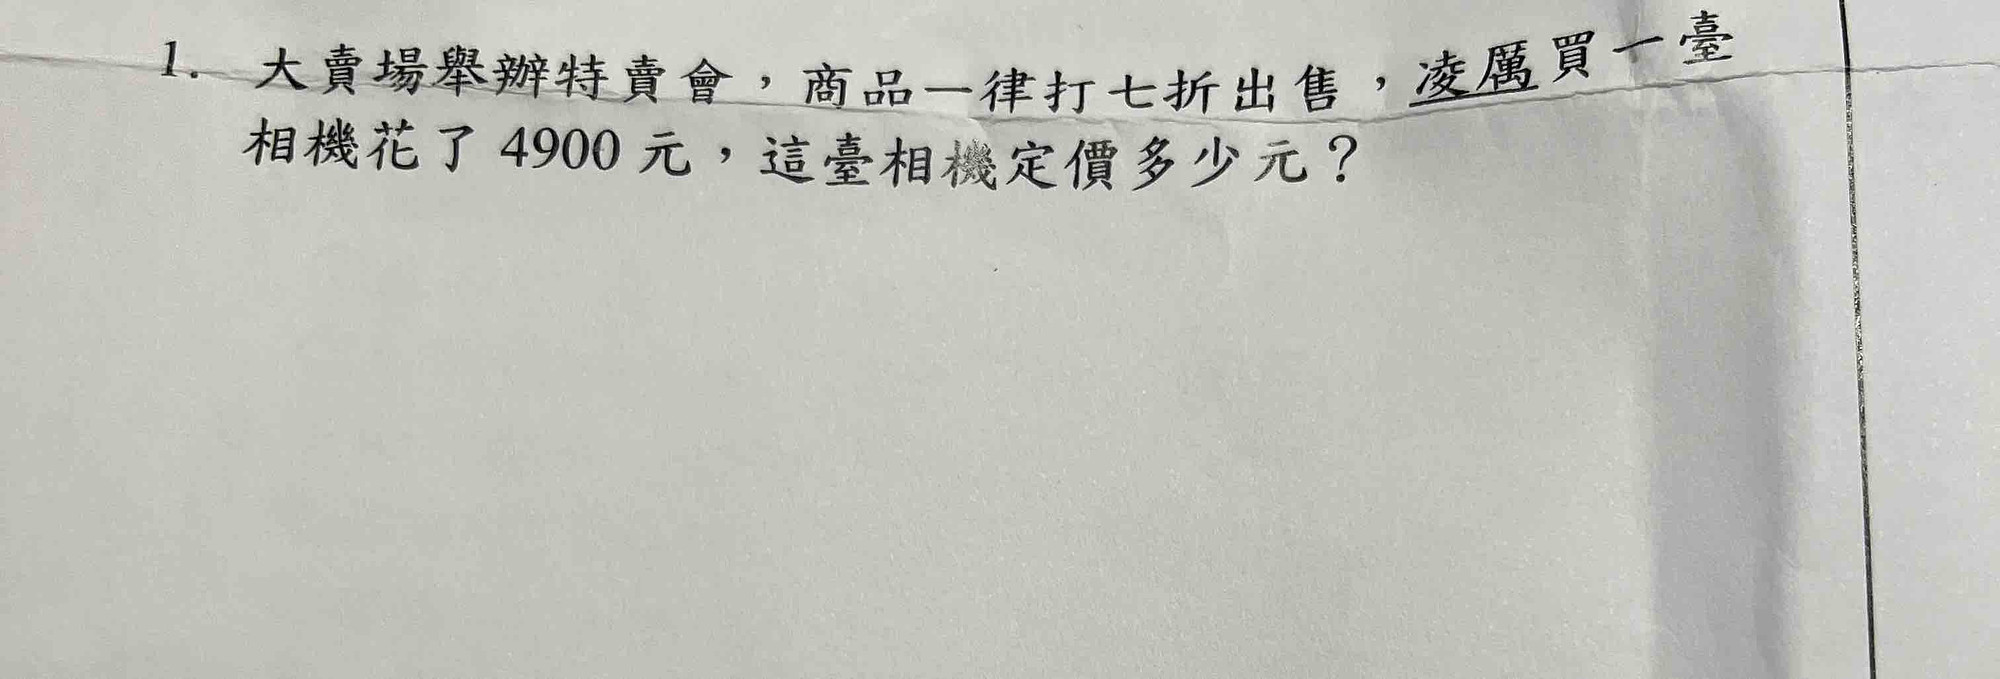 1. 大賣場舉辦特賣會，商品一律打七折出售，凌厲買一臺
相機花了 4900 元，這臺相機定價多少元？